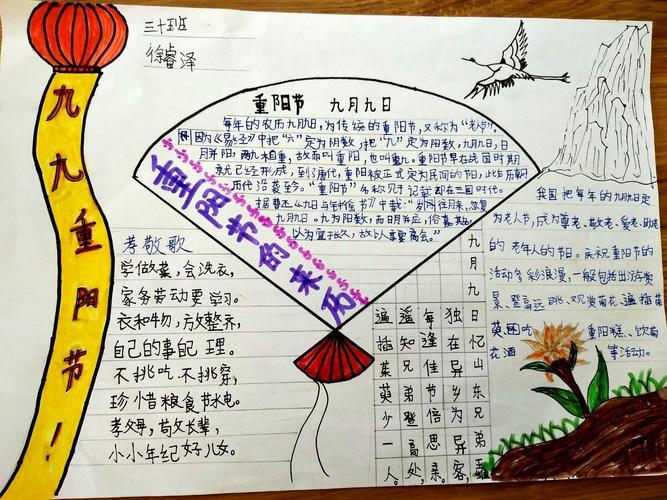 三十班
徐睿泽
九九重阳节！
重阳节 九月九日
每年的农历九月九日，为传统的重阳节，又称为“老人节”。
因为《易经》中把“六”定为阴数，把“九”定为阳数，九月九日，日
月并阳，两九相重，故而叫重阳，也叫重九。重阳节早在战国时期
就已经开形成，到唐代，重阳被正式定为民间的节日，此后历朝
历代沿袭至今。“重阳节”名称见于记载却在三国时代。
据曹丕《九日与钟繇书》中载：“岁往月来，忽复
九月九日。九为阳数，而日月并应，俗嘉其
以为宜于长久，故以享宴高会。”
重阳节的来历
孝敬歌
学做菜，会洗衣，
家务劳动要学习。
衣和物，放整齐，
自己的事自己理。
不挑吃，不挑穿，
珍惜粮食节水电。
孝父母，敬长辈，
小小年纪好儿女。
九月九日忆山东兄弟
独在异乡为异客，
每逢佳节倍思亲。
遥知兄弟登高处，
遍插茱萸少一人。
我国把每年的九月九日定
为老人节，成为尊老、敬老、爱老、助老
的老年人的节日。庆祝重阳节的
活动多彩浪漫，一般包括出游赏
景、登高远眺、观赏菊花、遍插茱
萸、吃重阳糕、饮菊
花酒等活动。